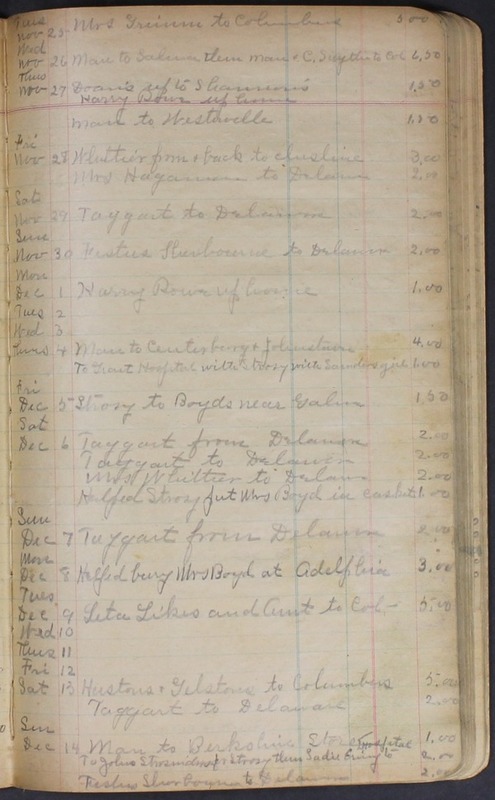 Tues
Nov 25 Mrs to Columbus 5.00
Wed
Nov 26 Man to then man + C. to Col 6.50
Thus
Nov 27 up to Shannons 1.50
Harry Rowe up home
Man to Westerville 1.50
Fri
Nov 28 Whittier from + back to 3.00
Mrs to Delawar 2.00
Sat
Nov 29 Taggart to Delawar 2.00
Sun
Nov 30 Festus Sherbourne to Delawar 2.00
Mon
Dec 1 Harry Rowe up home 1.00
Tues 2
Wed 3
Thurs 4 Man to Centerburg + Johnstown 4.00
To Grant Hospital with Strosy with Sanders girl 1.00
Fri
Dec 5 Strosy to Boyds near Galen 1.50
Sat
Dec 6 Taggart from Delawar 2.00
Taggart to Delawar 2.00
Mrs Whittier to Delawar 2.00
Helped Strosy put Mrs Boyd in casket 1.00
Sun
Dec 7 Taggart from Delawar 2.00
Mon
Dec 8 Helped bury Mrs Boyd at Adelphia 3.00
Tues
Dec 9 Leta Likes and Aunt to Col- 5.00
Wed 10
Thus 11
Fri 12
Sat 13 Hustons + Gelstons to Columbus 5.00
Taggart to Delaware 2.00
Sun
Dec 14 Man to Berkshire Store 1.00
Hospital
To Johns for Strosy then Sadie to 2.00
Festus Sherbourne to Delawar 2.00